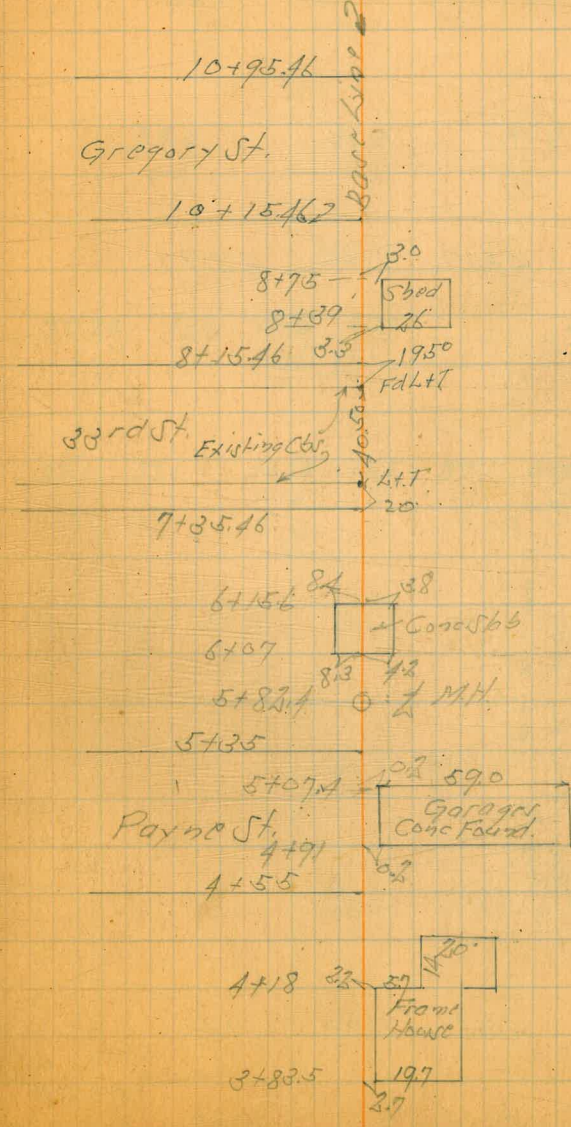 Base Line 2
10+95.46
Gregory St.
10+15.462
3.0
8+75
Shed
8+39
26
3.3
8+15.46
19.5°
Fd L+T
33rd St.
Existing Cbs.
40.50
L+T
20.
7+35.46
8.4
3.8
6+15.6
6+07
8.3
4.2
5+82.4
M.H.
5+35
0.2
59.0
5+07.4
Garages
Conc Found.
Payne St.
4+91
0.2
4+55
20.
14
4+18
2.2
5.7
Frame
House
3+83.5
19.7
2.7